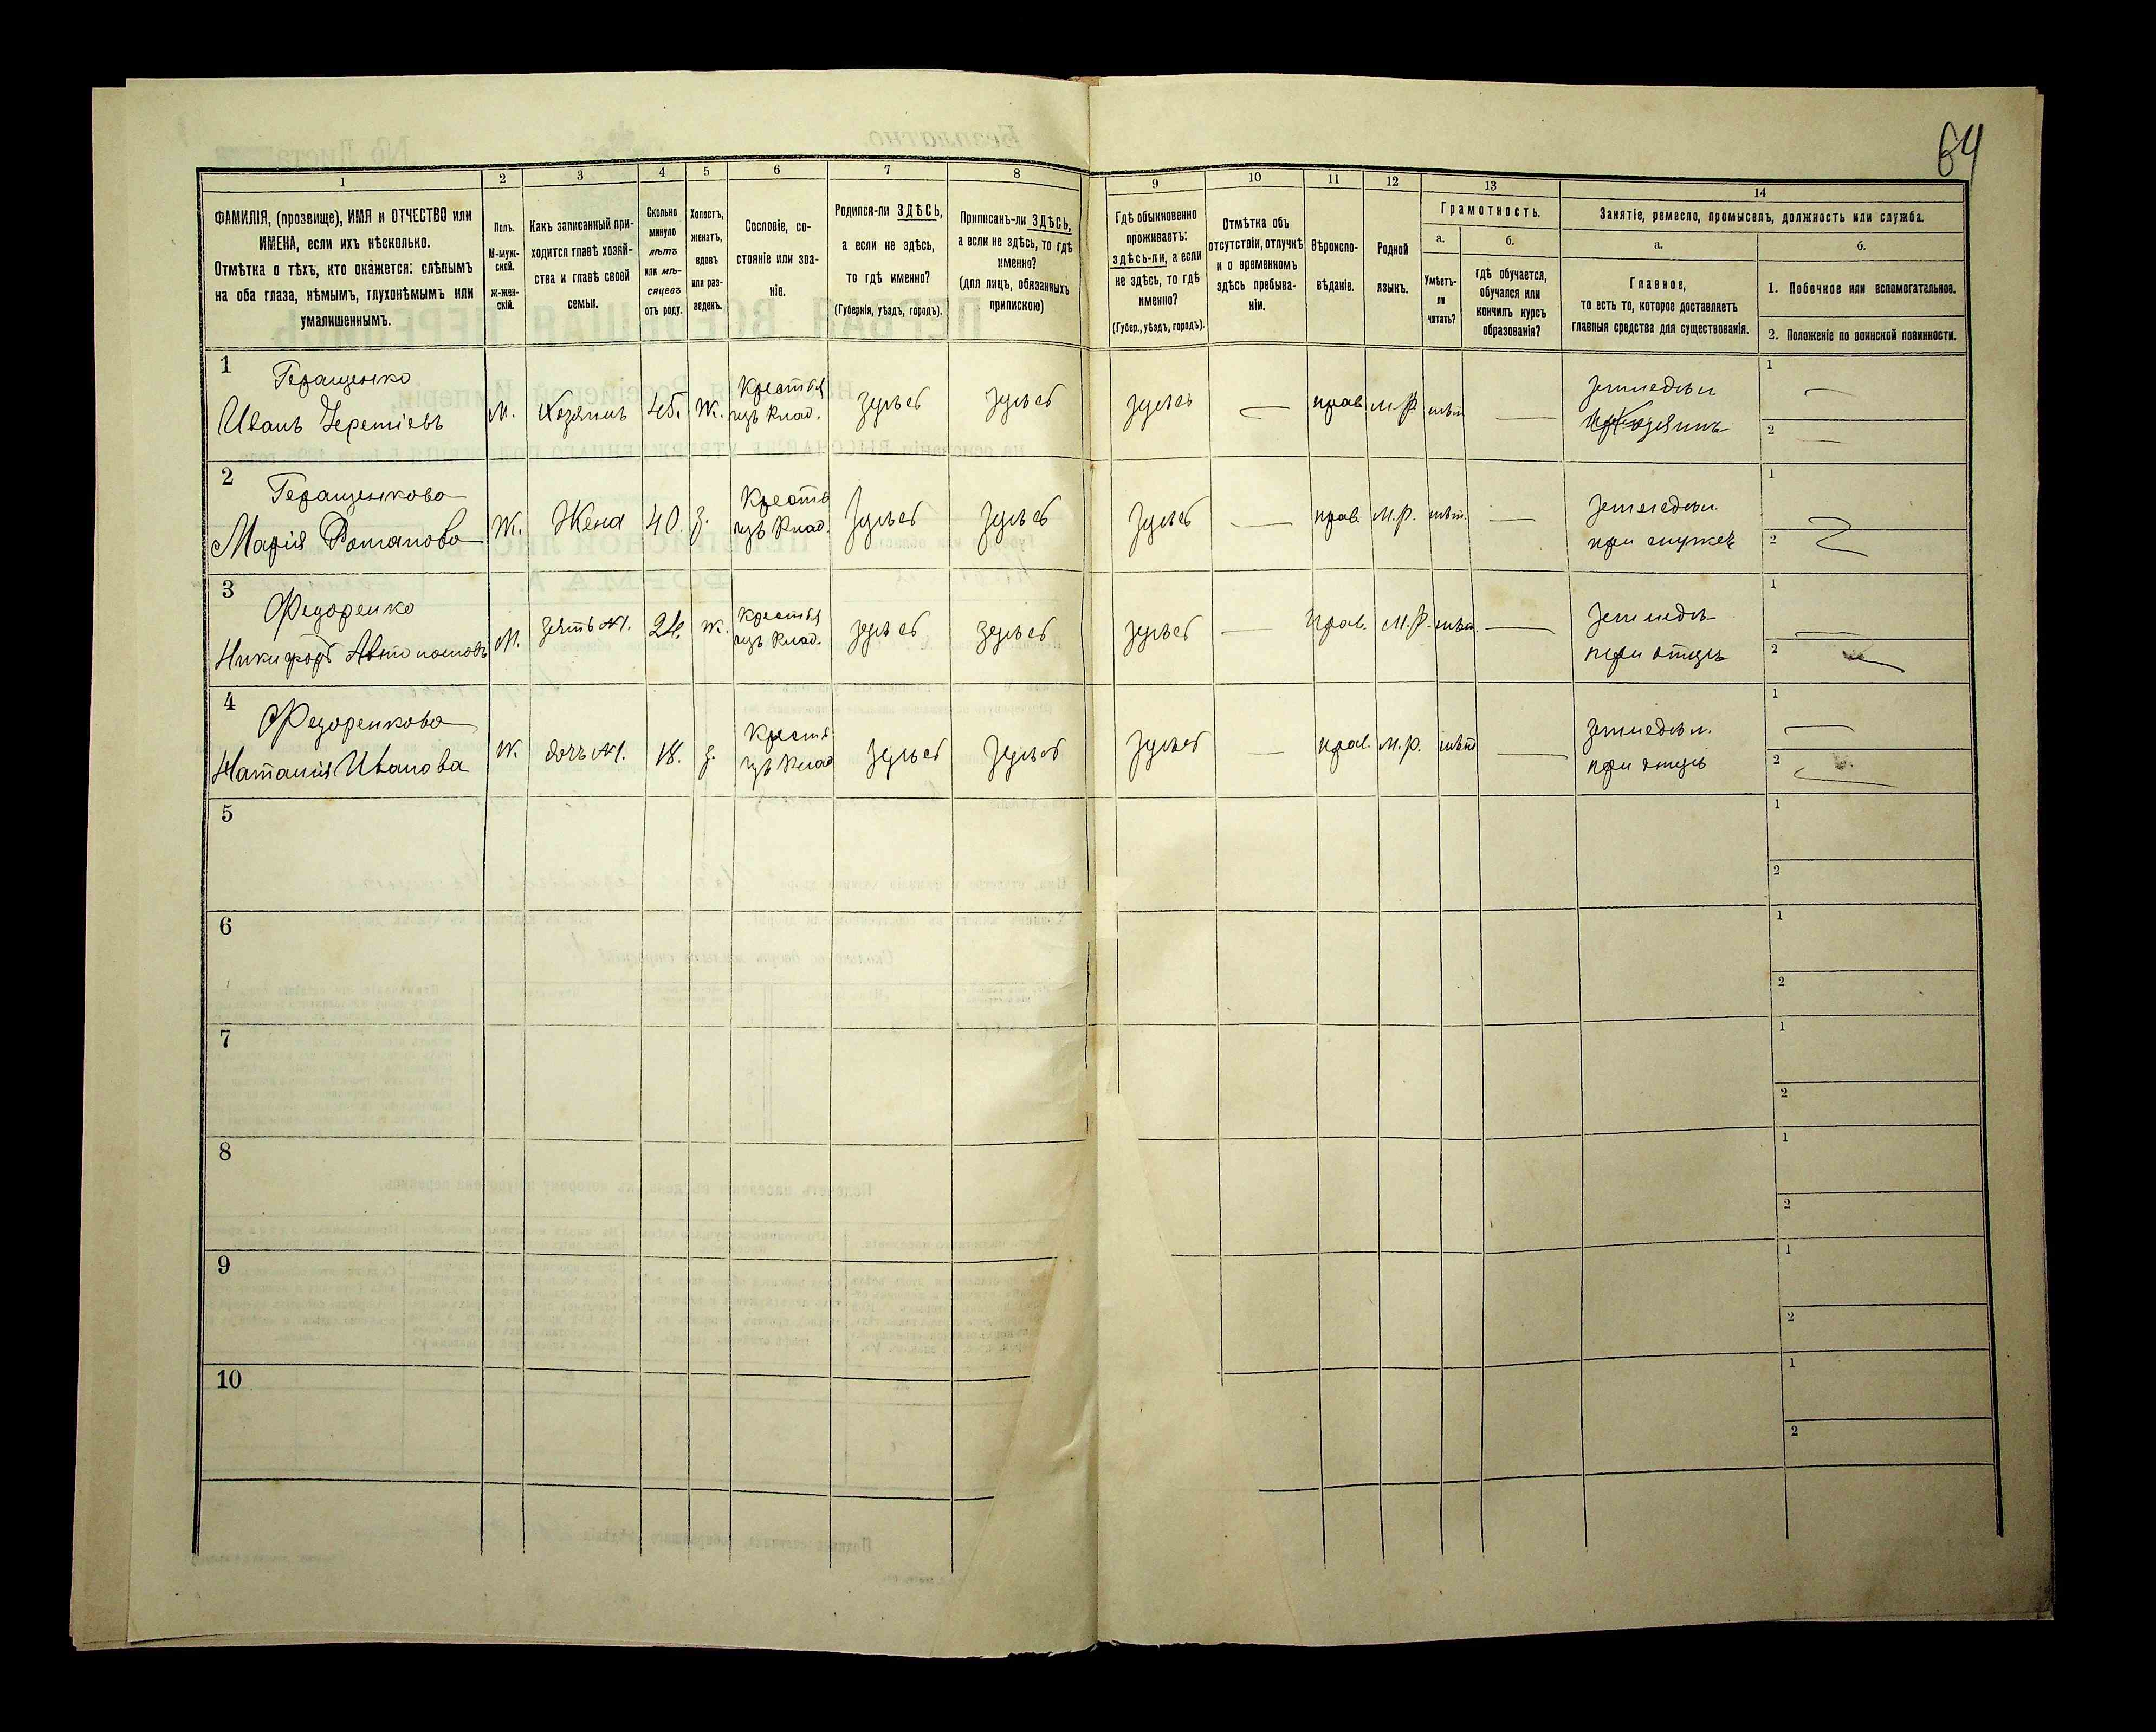 64
1
2
3
4
5
6
7
8
9
10
11
12
13
14
ФАМИЛІЯ, (прозвище), ИМЯ и ОТЧЕСТВО или
ИМЕНА, если ихъ нѣсколько.
Отмѣтка о тѣхъ, кто окажется: слѣпымъ
на оба глаза, нѣмымъ, глухонѣмымъ или
умалишеннымъ.
Полъ.
М-муж-
ской.
ж-жен-
скій.
Какъ записанный при-
ходится главѣ хозяй-
ства и главѣ своей
семьи.
Сколько
минуло
лѣтъ
или мѣ-
сяцевъ
отъ роду.
Холостъ,
женатъ,
вдовъ
или раз-
веденъ.
Сословіе, со-
стояніе или зва-
ніе.
Родился-ли ЗДѢСЬ,
а если не здѣсь,
то гдѣ именно?
(Губернія, уѣздъ, городъ).
Приписанъ-ли ЗДѢСЬ,
а если не здѣсь, то гдѣ
именно?
(для лицъ, обязанныхъ
припискою)
Гдѣ обыкновенно
проживаетъ:
здѣсь-ли, а если
не здѣсь, то гдѣ
именно?
(Губер., уѣздъ, городъ).
Отмѣтка объ
отсутствіи, отлучкѣ
и о временномъ
здѣсь пребыва-
ніи.
Вѣроиспо-
вѣданіе.
Родной
языкъ.
Грамотность.
а.
Умѣетъ-
ли
читать?
б.
гдѣ обучается,
обучался или
кончилъ курсъ
образованія?
Занятіе, ремесло, промыселъ, должность или служба.
а.
Главное,
то есть то, которое доставляетъ
главныя средства для существованія.
б.
1. Побочное или вспомогательное.
2. Положеніе по воинской повинности.
1
Геращенко
Иванъ Іереміевъ
М. Хозяинъ 45. Ж.
Крестья
изъ влад.
здѣсь здѣсь здѣсь — прав. М.Р. нѣт —
земледѣл.
хозяинъ
1 —
2 —
2
Геращенкова
Марія Потапова
Ж. Жена 40. з.
Крестья
изъ влад.
здѣсь здѣсь здѣсь — прав. М.Р. нѣт. —
земледѣл.
при мужѣ
1
2
3
Федоренко
Никифоръ Автономовъ
М. зять №1. 24. Ж.
Крестья
изъ влад.
здѣсь здѣсь здѣсь — прав. М.Р. нѣт. —
земледѣ-
при отцѣ
1 —
2 —
4
Федоренкова
Наталія Иванова
Ж. дочь №1. 18. з.
Крестья
изъ влад
здѣсь здѣсь здѣсь — прав. М.р. нѣт —
земледѣл.
при отцѣ
1 —
2 —
5
1
2
6
1
2
7
1
2
8
1
2
9
1
2
10
1
2